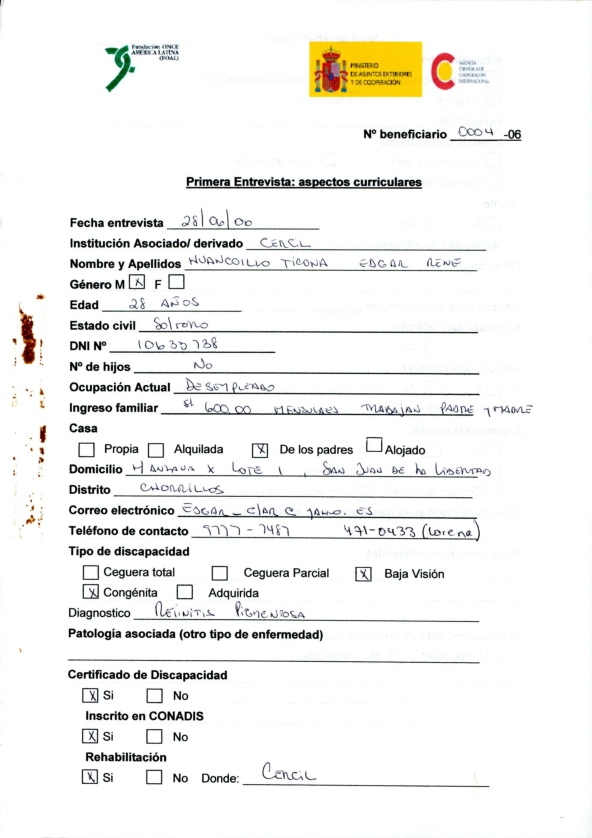 Fundación ONCE
AMÉRICA LATINA
(FOAL)
MINISTERIO
DE ASUNTOS EXTERIORES
Y DE COOPERACIÓN
AGENCIA
ESPAÑOLA DE
COOPERACIÓN
INTERNACIONAL
Nº beneficiario 0004 -06
Primera Entrevista: aspectos curriculares
Fecha entrevista 28/06/00
Institución Asociado/ derivado CERCIL
Nombre y Apellidos HUANCOILLO TICONA EDGAR RENE
Género M X F
Edad 28 AÑOS
Estado civil Soltero
DNI Nº 10635738
Nº de hijos No
Ocupación Actual DESEMPLEADO
Ingreso familiar S/ 600.00 MENSUALES TRABAJAN PADRE Y MADRE
Casa
Propia Alquilada X De los padres Alojado
Domicilio MANZANA X LOTE 1, SAN JUAN DE LA LIBERTAD
Distrito CHORRILLOS
Correo electrónico EDGAR_CLAR@YAHOO.ES
Teléfono de contacto 9777-7487 471-0433 (Lorena)
Tipo de discapacidad
Ceguera total Ceguera Parcial X Baja Visión
X Congénita Adquirida
Diagnostico RETINITIS PIGMENTOSA
Patología asociada (otro tipo de enfermedad)
Certificado de Discapacidad
X Si No
Inscrito en CONADIS
X Si No
Rehabilitación
X Si No Donde: CERCIL